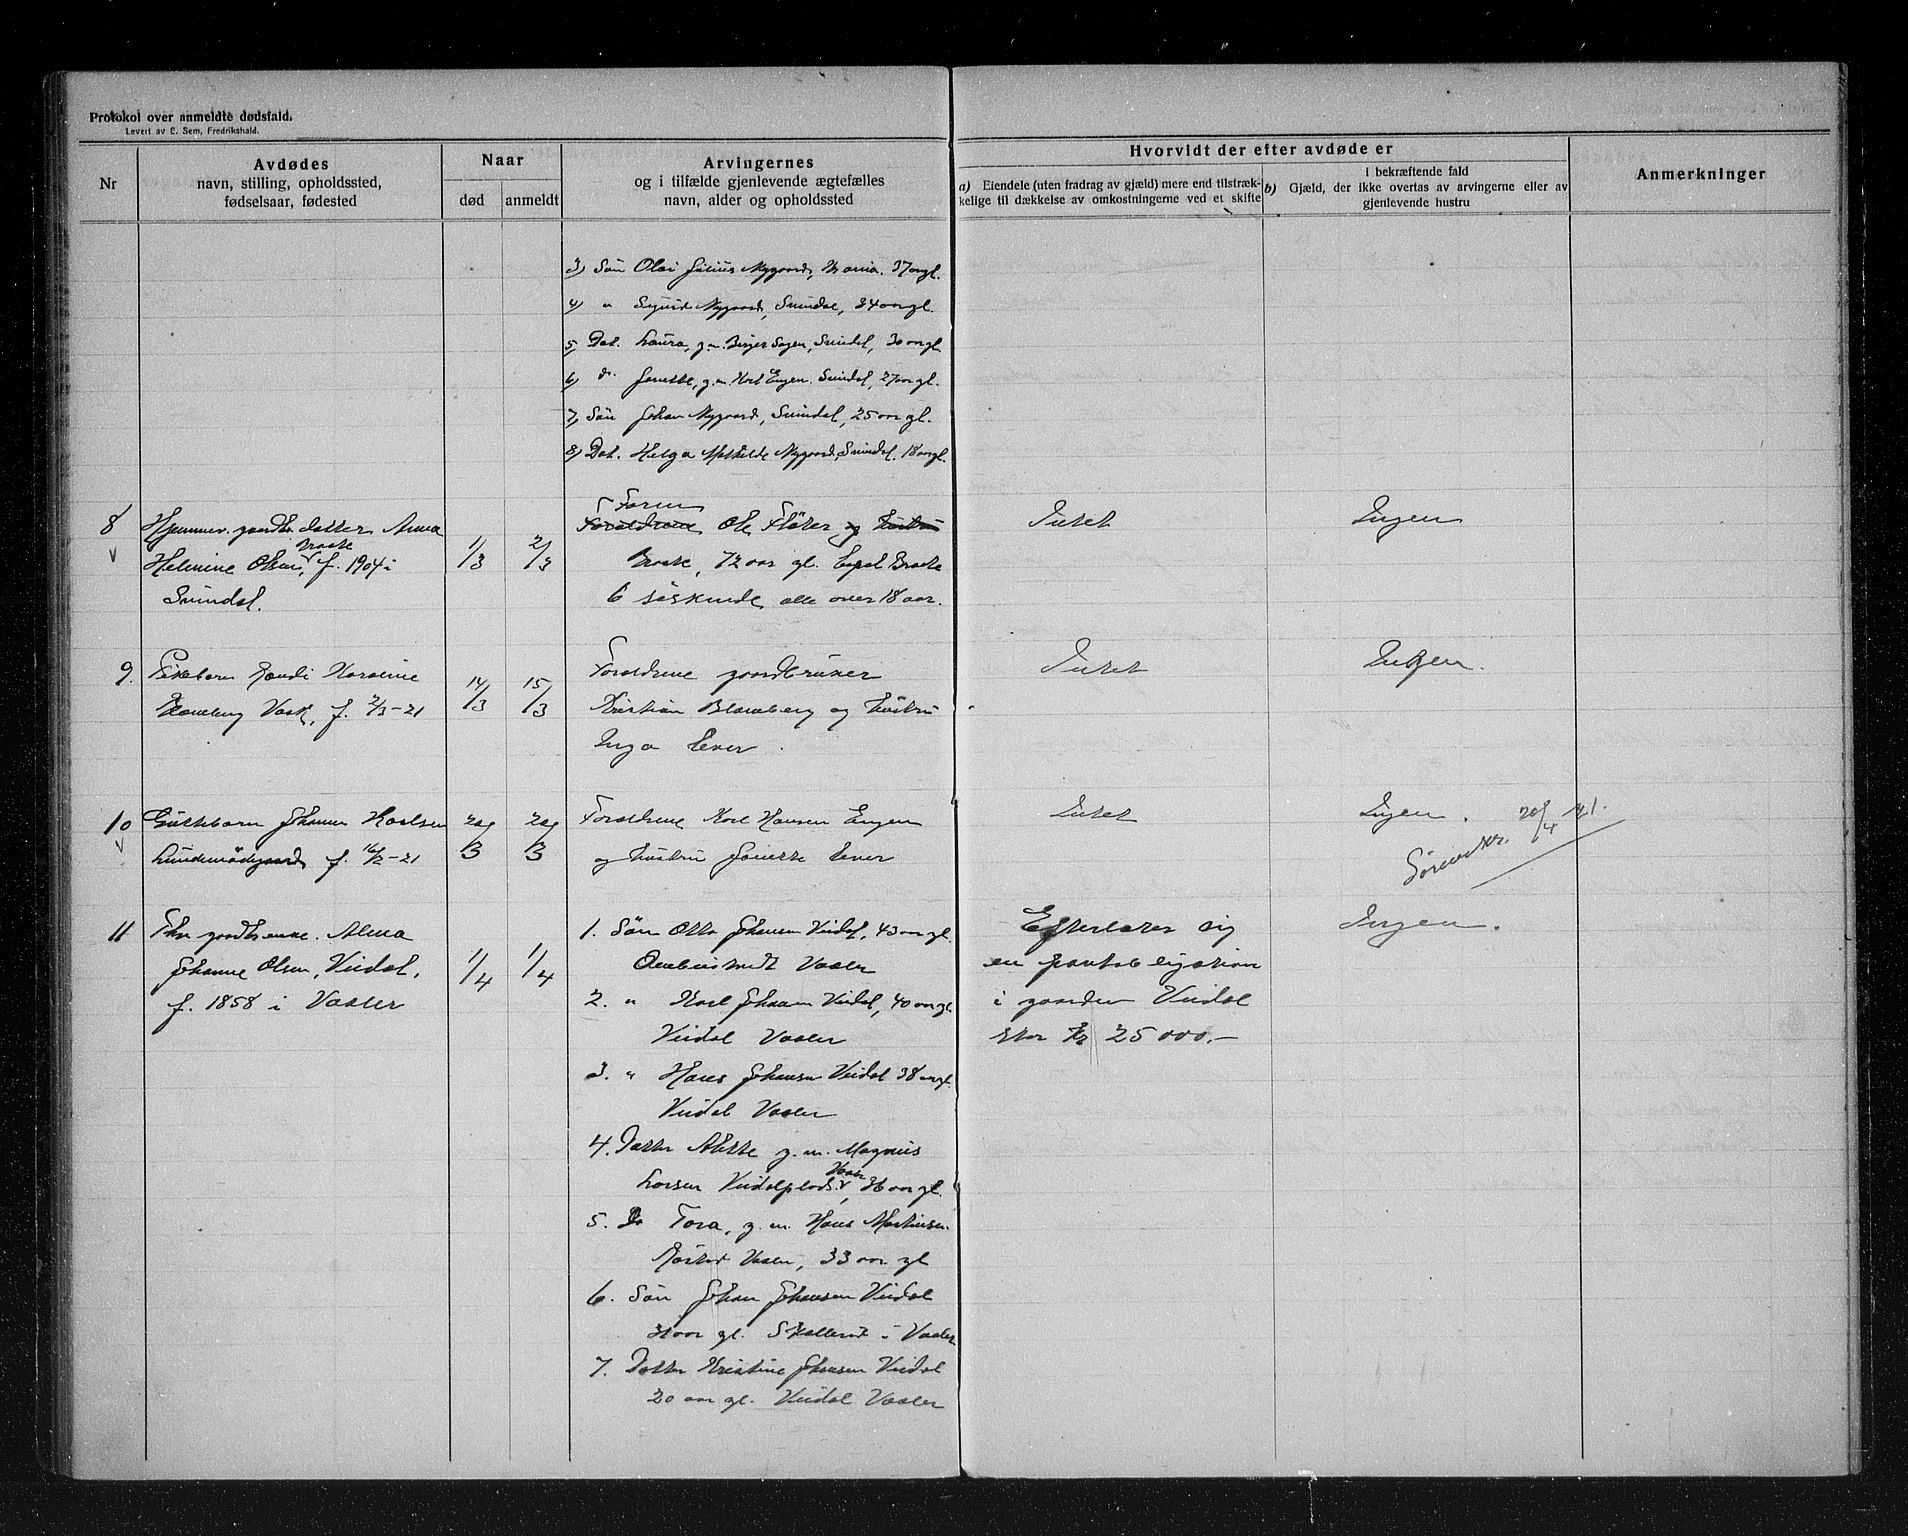 Protokol over anmeldte dødsfald.
Levert av E. Sem, Fredrikshald.
Nr
Avdødes
navn, stilling, opholdssted,
fødselsaar, fødested
Naar
død
anmeldt
Arvingernes
og i tilfælde gjenlevende ægtefælles
navn, alder og opholdssted
Hvorvidt der efter avdøde er
a) Eiendele (uten fradrag av gjæld) mere end tilstræk-
kelige til dækkelse av omkostningerne ved et skifte
i bekræftende fald
b) Gjæld, der ikke overtas av arvingerne eller av
gjenlevende hustru
Anmerkninger
3) Søn Olai Julius Nygaard, 37 aar gl.
4) " Sigurd Nygaard, Svindal, 34 aar gl.
5) Dat. Laura, g.m. Birger Svindal, 30 aar gl
6) do. Janette, g.m. Karl Engen. Svindal, 27 aar gl.
7) Søn Johan Nygaard, Svindal, 25 aar gl.
8) Dat. Helga Mathilde Nygaard, Svindal. 18 aar gl.
8
Hjemmev. gaardbr. datter Anna
Braate
Helmine Olsen, f. 1904 i
Svindal.
1/3
2/3
Faren
Forældrene Ole Fløter og hustru
Braate, 72 aar gl. Braate
6 søskende alle over 18 aar.
Intet
Ingen
9.
Pikebarn Randi Karoline
Blomberg Vask, f. 2/3-21
14/3
15/3
Forældrene gaardbruker
Kristian Blomberg og hustru
Inga Ener
Intet
Ingen.
10
Guttebarn Johannes Karlsen
Lundemødegaard f. 16/2-21
29/3
29/3
Forældrene Karl Hansen Engen
og hustru Janette Ener
Intet
Ingen.
20/4 1921.
11
Fhv gaardbr. enke. Alma
Johanne Olsen, Vindal,
f. 1858 i Vaaler
1/4
1/4
1. Søn Otto Johansen Vindal, 43 aar gl.
Vaaler
2. " Karl Johansen Vindal, 40 aar gl.
Vindal Vaaler
3. " Hans Johansen Vindal 38 aar gl.
Vindal Vaaler
4. Datter Alette g. m. Magnus
Larsen Vindalplads, Vaaler, 36 aar gl.
5. Do Tora, g. m. Hans Martinsen
Vaaler, 33 aar gl
6. Søn Johan Johansen Vindal
31 aar gl. Skallerud i Vaaler
7. Datter Kristine Johansen Vindal
20 aar gl. Vindal Vaaler
Efterlater sig
en pantobligation
i gaarden Vindal
stor Kr 25000.-
Ingen.